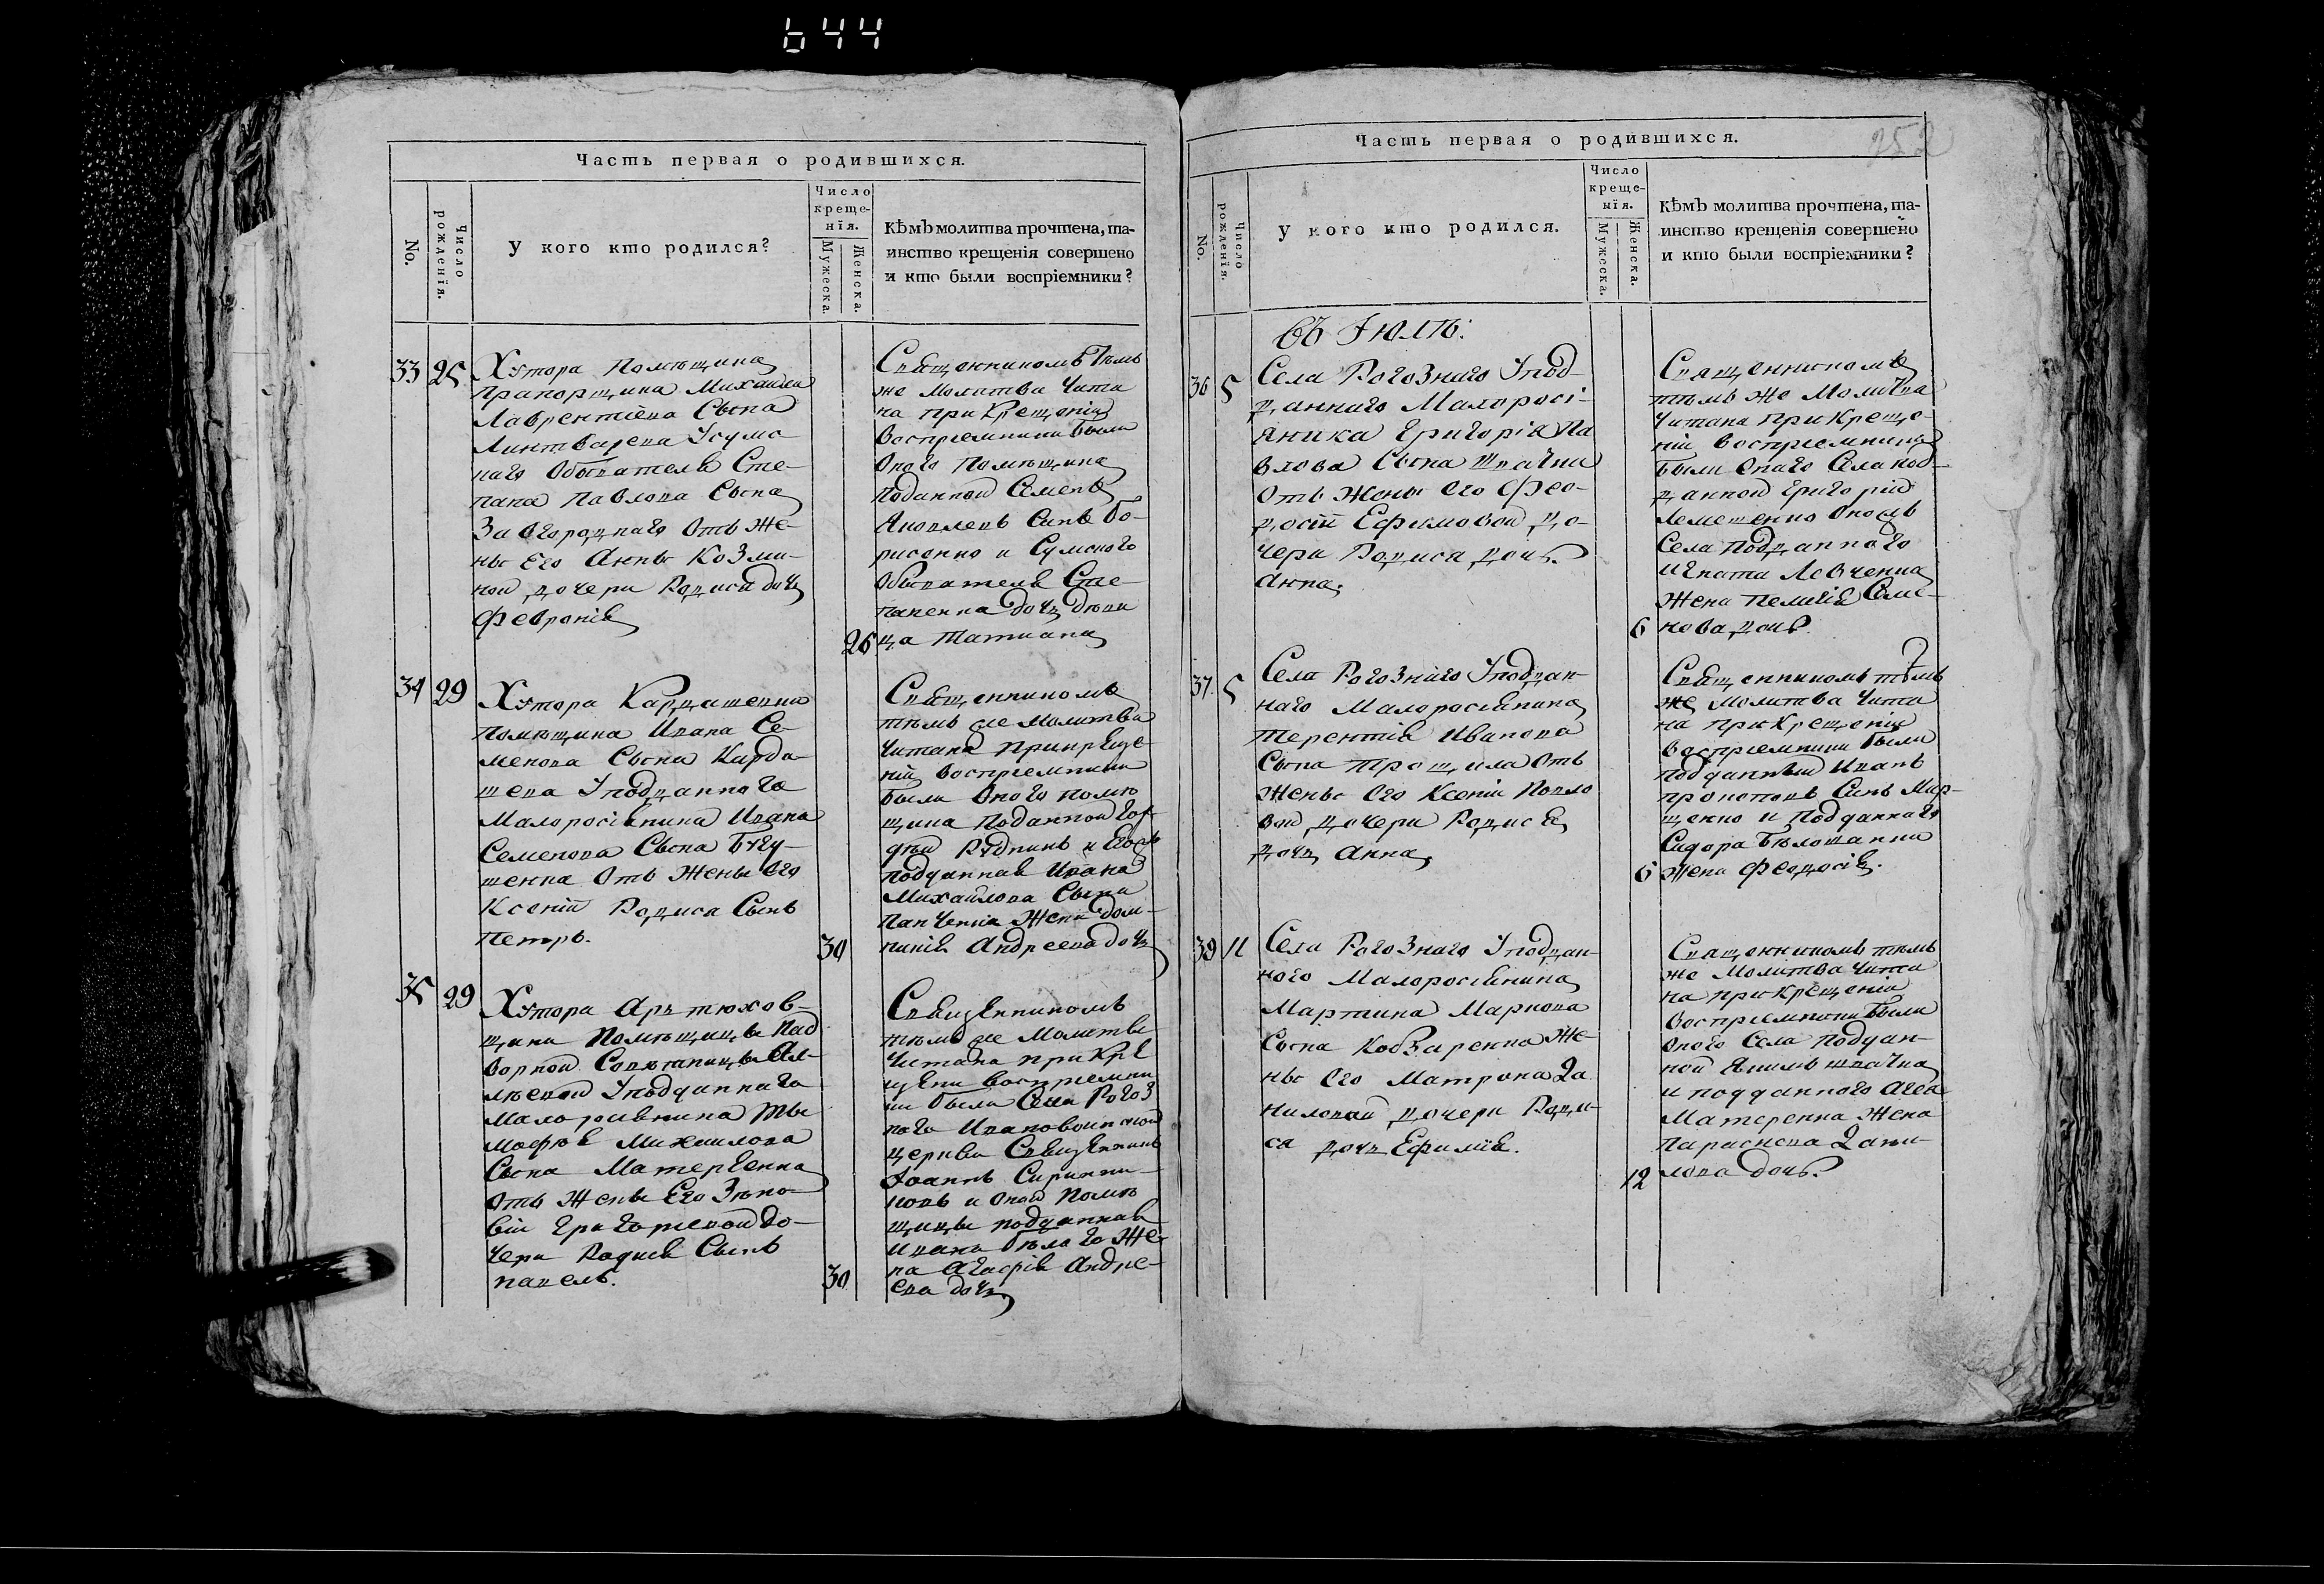 644
Часть первая о родившихся.
No.
Число рожденїя.
У кого кто родился?
Число крещенїя.
Мужеска.
Женска.
Кѣмъ молитва прочтена, та-
инство крещенія совершено
и кто были воспріемники?
33
25
Хутора Помѣщика
Прапорщика Михаила
Лаврентіева Сына
Линтварева Усумс
каго Обывателя Сте-
пана Павлова Сына
Завгороднаго Отъ Же-
ны Его Анны Козми-
ной дочери Родися дочь
Февронія
26
Священникомъ тѣмъ
же Молитва Чита
на при Крещеніи
Воспріемники Были
Оного Помѣщика
Поданной Семенъ
Яковлевъ Синъ Бо-
рисенко и Сумского
Обывателя Сте-
паненка дочь дѣви
ца Татиана
34
29
Хутора Кардашевки
Помѣщика Ивана Се-
менова Сына Карда-
шева Уподданнаго
Малоросіянина Ивана
Семенова Сына
Отъ Жены Его
Ксеніи Родися Сынъ
Петръ.
30
Священникомъ
тѣмъ же Молитва
Читана При Креще-
ніи Воспріемники
Были Оного помѣ
щика Поданной
подданная Ивана
Михайлова Сына
Панченка Жена дом-
никія Андреева дочь
35
29
Хутора Артюхов-
щини Помѣщицы Над
ворной Совѣтницы
Уподданнаго
Малоросіянина Ти
мофея Михаилова
Сына Матерѣенка
Отъ Жены Его Зѣно-
віи Григориевой до-
чери Родися Сынъ
Павелъ.
30
Священникомъ
тѣмъ же Молитва
Читана при Кре
щени Воспріемни
ки были Села Рогоз
наго Ивановоинской
церкви Священникъ
Іоаннъ
и оной Помѣ
щицы подданная
Ивана Бѣлаго Же-
на Агафія Андре-
ева дочь
Часть первая о родившихся.
252
No.
Число рожденїя.
У кого кто родился.
Число
креще-
нїя.
Мужеска.
Женска.
Кѣмъ молитва прочтена, та-
инство крещенія совершено
и кто были воспріемники?
Въ Іюлѣ:
36
5
Села Рогознаго Упод-
даннаго Малоросі-
яника Григорія Па
влова Сына Шпачки
Отъ Жены Его Фео-
досіи Ефимовой до-
чери Родися дочь
Анна.
6
Священникомъ
тѣмъ же Молитва
Читана при Креще-
ніи Воспріемники
Были Оного Села под-
данной Григорій
Лемешенко Оногъ
Села Подданного
Игната Левченка
Жена Пелагія Семе-
нова дочь.
37
5
Села Рогознаго Уподдан-
наго Малоросіянина
Терентія Иванова
Сына Трощила Отъ
Жены Его Ксеніи Павло
вой дочери Родися
дочь Анна.
6
Священникомъ тѣмъ
же Молитва Чита
на при Крещеніи
Воспріемники Были
Подданный Иванъ
Прокоповъ Синъ Мир-
щенко и Подданнаго
Сидора Бѣлованки
Жена Феодосія.
39
11
Села Рогознаго Уподдан-
ного Малоросіянина
Мартина Маркова
Сына Кобзаренка Же-
ны Его Матрона Да
ниловой дочери Роди-
ся дочь Ефимія.
12
Священникомъ тѣмъ
же Молитва Чита
на при Крещеніи
Воспріемники Были
Оного Села Поддан-
ной Якимъ Шпачка
и подданного
Матеренка Жена
Параскева Дани-
лова дочь.